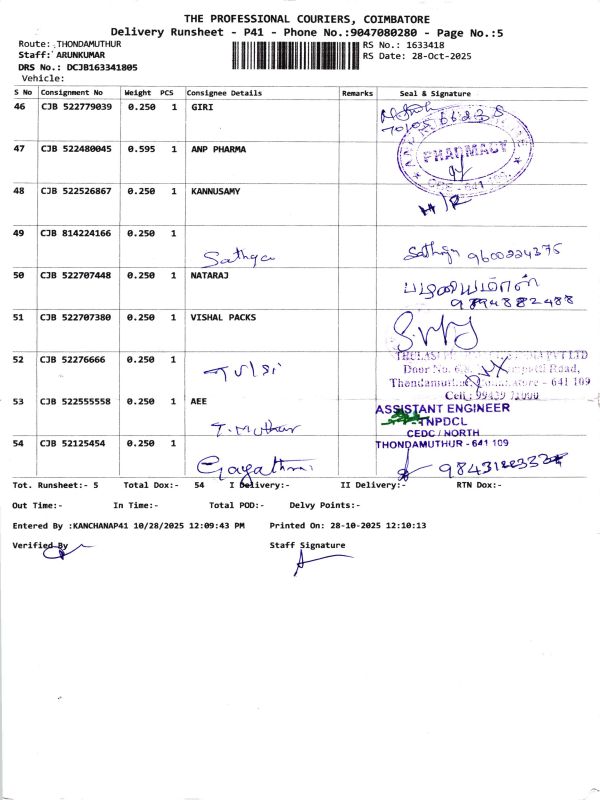 THE PROFESSIONAL COURIERS, COIMBATORE
Delivery Runsheet - P41 - Phone No.:9047080280 - Page No.:5
Route: THONDAMUTHUR RS No.: 1633418
Staff: ARUNKUMAR RS Date: 28-Oct-2025
DRS No.: DCJB163341805
Vehicle:
S No Consignment No Weight PCS Consignee Details Remarks Seal & Signature
46 CJB 522779039 0.250 1 GIRI
47 CJB 522480045 0.595 1 ANP PHARMA
PHARMACY
48 CJB 522526867 0.250 1 KANNUSAMY
H/R
49 CJB 814224166 0.250 1
Sathya Sathya 9600224375
50 CJB 522707448 0.250 1 NATARAJ
9894882488
51 CJB 522707380 0.250 1 VISHAL PACKS
52 CJB 52276666 0.250 1
Tulsi
Door No. Road,
Thondamuthur, Coimbatore - 641 109
53 CJB 522555558 0.250 1 AEE
T. Muthur
ASSISTANT ENGINEER
TNPDCL
CEDC / NORTH
THONDAMUTHUR - 641 109
54 CJB 52125454 0.250 1
Gayathri
Tot. Runsheet:- 5 Total Dox:- 54 I Delivery:- II Delivery:- RTN Dox:-
Out Time:- In Time:- Total POD:- Delvy Points:-
Entered By :KANCHANAP41 10/28/2025 12:09:43 PM Printed On: 28-10-2025 12:10:13
Verified By Staff Signature